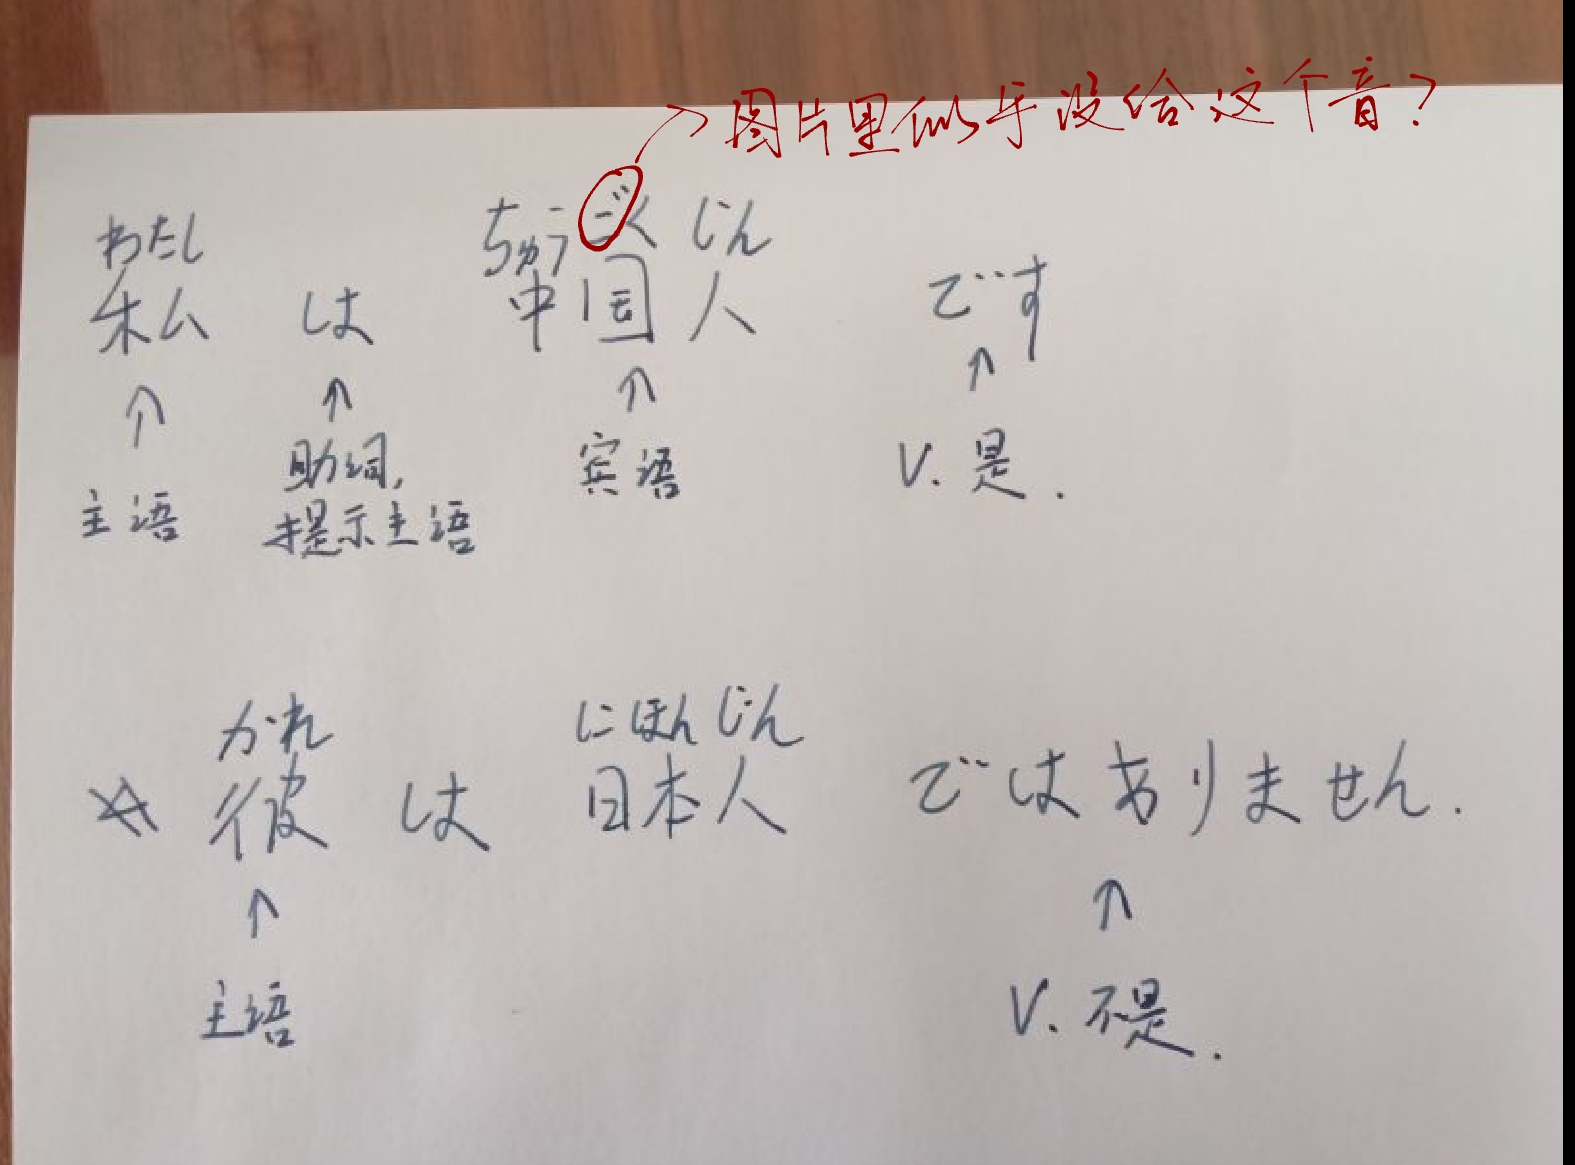 图片里似乎没给这个音?
わたし ちゅうごくじん
私 は 中国人 です
↑ ↑ ↑ ↑
主语 助词, 宾语 V. 是.
提示主语
かれ にほんじん
☆ 彼 は 日本人 ではありません.
↑ ↑
主语 V. 不是.